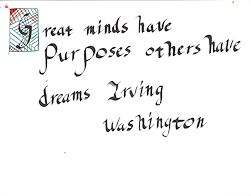 Great minds have
Purposes others have
dreams Irving
Washington